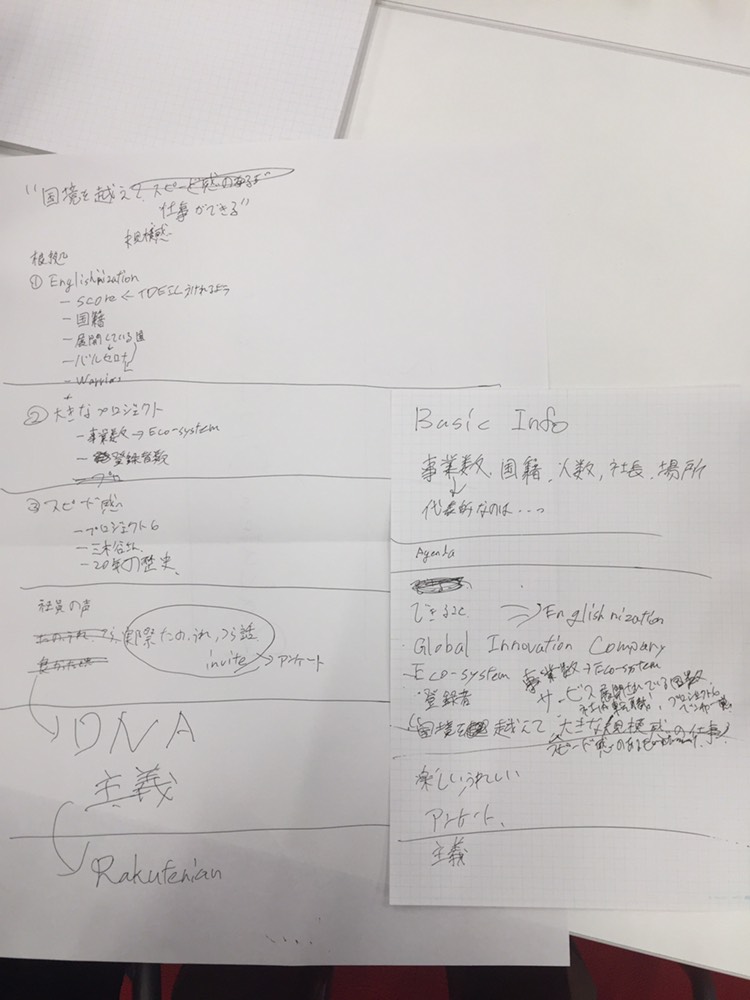 "国境を越えて スピード感のある
仕事ができる"
規模感
根拠
① Englishnization
- score ← TOEIC
- 国籍
- 展開している国
- バルセロナ
- Warriors
② 大きなプロジェクト
- 事業数 → Eco-system
- 登録者数
③ スピード感
- プロジェクト6
- 三木谷さん
- 20年の歴史
社員の声
実際たのしい, つらい話
invite → アンケート
DNA
主義
Rakutenian
Basic Info
事業数, 国籍, 人数, 社長, 場所
代表的なのは...
Agenda
できること ⇒ Englishnization
Global Innovation Company
Eco-system 事業数 → Eco-system
登録者 サービス 展開されている国数
プロジェクト6
(国境を 越えて 大きな規模感の仕事)
スピード感のある
楽しい, うれしい
アンケート,
主義